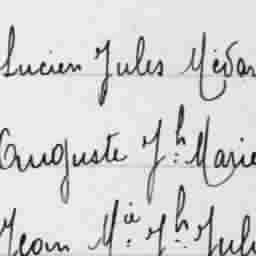 Lucien Jules Médar
Auguste Jh. Marie
Jean Mie. Jh. Juli